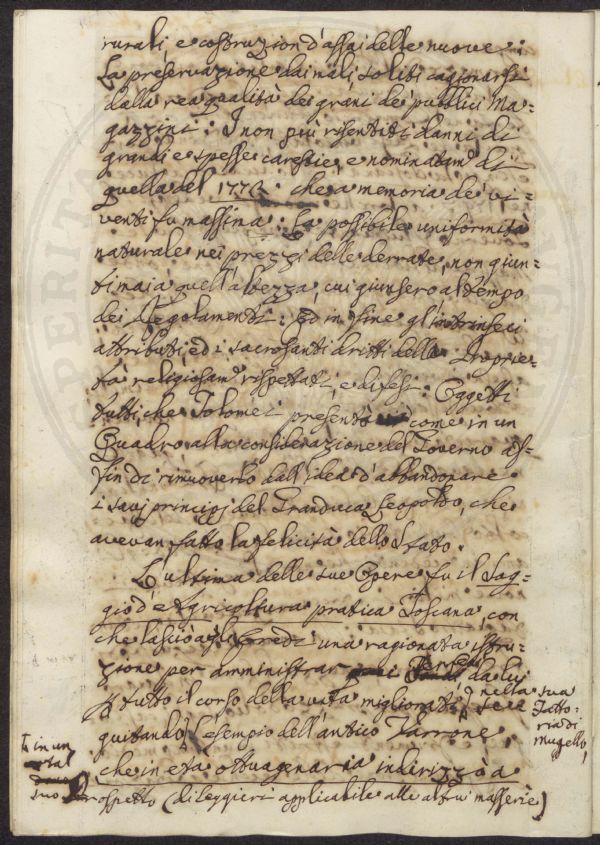 rurali, e costruzion d'assai delle nuove:
La preservazione dai mali, soliti cagionarsi
dalla rea qualità dei grani de' pubblici Ma=
gazzini: I non più risentiti danni di
grandi e spesse carestie, e nominatam.e di
quella del 177 che a memoria de' vi=
venti fu massima: La possibile uniformità
naturale nei prezzi delle derrate, non giun=
ti mai a quell'altezza, cui giunsero al tempo
dei Regolamenti: Ed in fine gl'intrinseci
attributi, ed i sacrosanti dritti della Proprie=
tà religiosam.e rispettati, e difesi: Oggetti
tutti, che Tolomei presentò come in un
Quadro alla considerazione del Governo af=
fin di rimuoverlo dall'idea d'abbandonare
i savj principj del Granduca Leopoldo, che
avevan fatto la felicità dello Stato.
L'ultima delle sue Opere fu il Sag=
gio d'Agricoltura pratica Toscana, con
che lasciò agli Eredi una ragionata istru=
zione per amministrar Terreni da lui
p tutto il corso della vita migliorati, nella sua
Fatto=
ria di
Mugello,
guitando l'esempio dell'antico Varrone,
che in età ottuagenaria indirizzò a
in un
suo Prospetto (di leggieri applicabile alle altrui masserie)